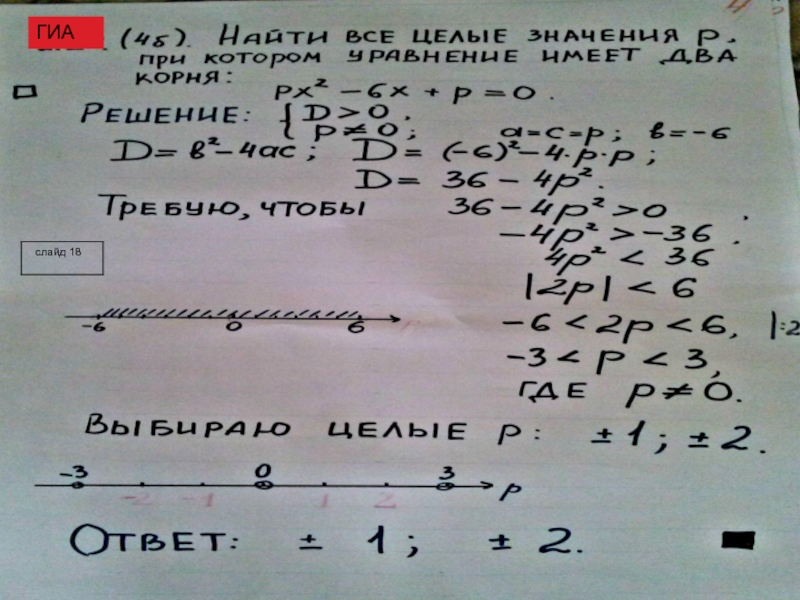 ГИА
(4б). Найти все целые значения p,
при котором уравнение имеет два
корня:
px² − 6x + p = 0.
Решение: { D > 0,
{ p ≠ 0; a = c = p; в = −6
D = в² − 4ac; D = (−6)² − 4·p·p;
D = 36 − 4p².
Требую, чтобы 36 − 4p² > 0,
−4p² > −36.
слайд 18
4p² < 36
|2p| < 6
−6 0 6
−6 < 2p < 6, |:2
−3 < p < 3,
где p ≠ 0.
Выбираю целые p: ± 1; ± 2.
−3 0 3
−2 −1 1 2 p
Ответ: ± 1; ± 2.